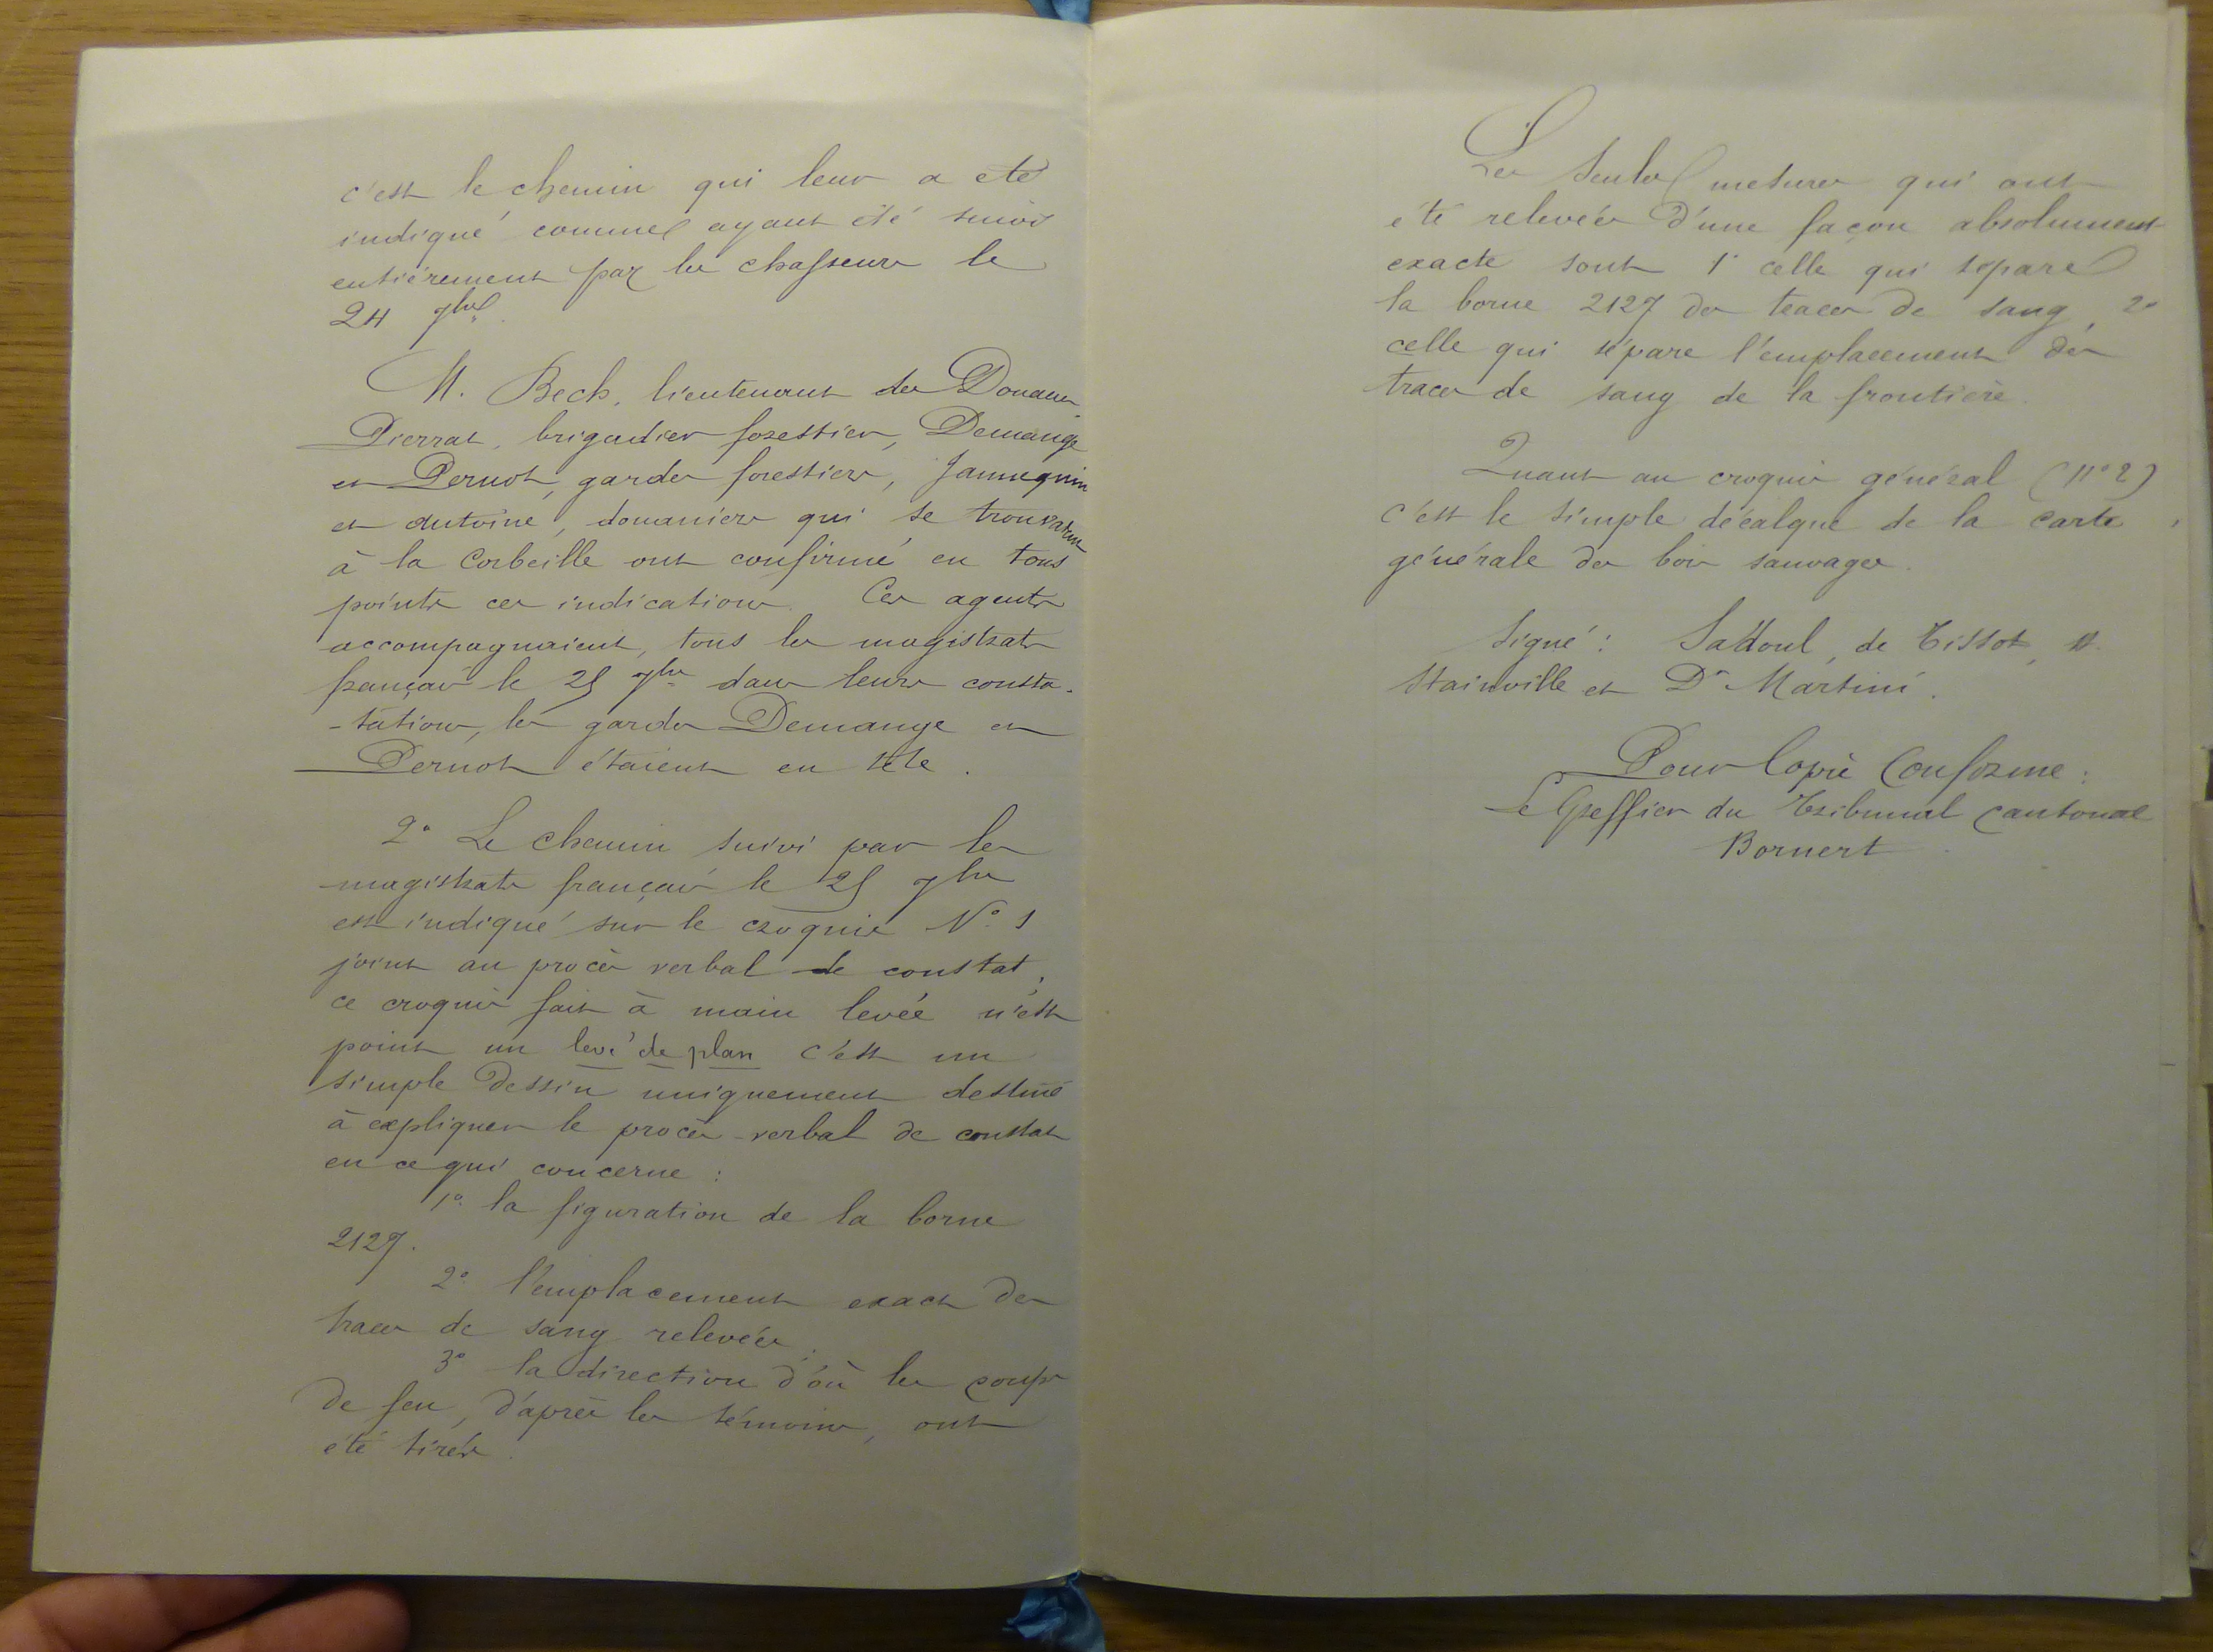 c'est le chemin qui leur a été
indiqué comme ayant été suivi
entièrement par les chasseurs le
24 7bre.
M. Beck, lieutenant des Douanes,
Pierrat, brigadier forestier, Demange
et Pernot, gardes forestiers, Jannequin
et Antoine, douaniers qui se trouvaient
à la Corbeille ont confirmé en tous
points ces indications. Ces agents
accompagnaient, tous les magistrats
français le 25 7bre dans leurs consta-
-tations, les gardes Demange et
Pernot étaient en tête.
2° Le chemin suivi par les
magistrats français le 25 7bre
est indiqué sur le croquis N° 1
joint au procès verbal de constat,
ce croquis fait à main levée n'est
point un levé de plan c'est un
simple dessin uniquement destiné
à expliquer le procès-verbal de constat
en ce qui concerne :
1° la figuration de la borne
2127.
2° l'emplacement exact des
traces de sang relevées.
3° la direction d'où les coups
de feu, d'après les témoins, ont
été tirés.
Les seules mesures qui ont
été relevées d'une façon absolument
exacte sont 1° celle qui sépare
la borne 2127 des traces de sang, 2°
celle qui sépare l'emplacement des
traces de sang de la frontière.
Quant au croquis général (N° 2)
c'est le simple décalque de la carte
générale des bois sauvages.
Signé : Sadoul, de Tissot,
Stainville et Dr Martini.
Pour Copie Conforme :
Le Greffier du Tribunal Cantonal
Bornert